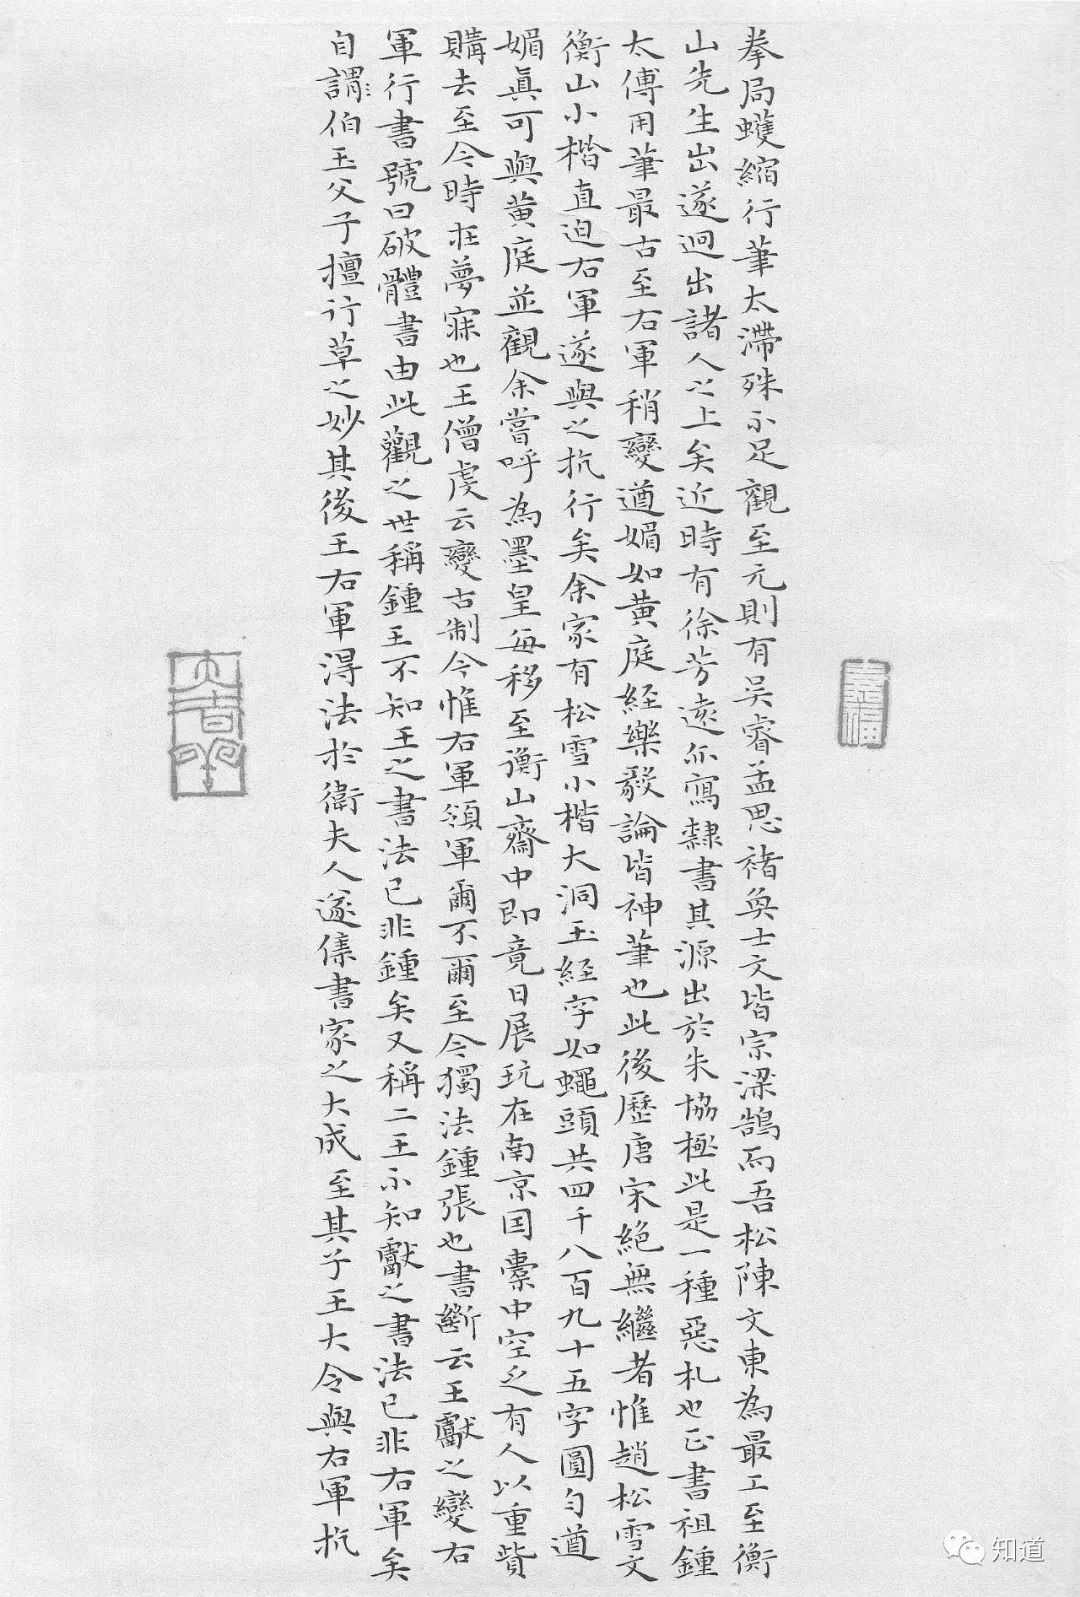 拳局蠖縮行筆太滯殊不足觀至元則有吴睿孟思褚奐士文皆宗梁鵠而吾松陳文東為最工至衡
山先生出遂迥出諸人之上矣近時有徐芳遠亦寫隸書其源出於朱協極此是一種惡札也正書祖鍾
太傅用筆最古至右軍稍變遒媚如黄庭經樂毅論皆神筆也此後歷唐宋絶無繼者惟趙松雪文
衡山小楷直迫右軍遂與之抗行矣余家有松雪小楷大洞玉經字如蠅頭共四千八百九十五字圓勻遒
媚真可與黄庭並觀余嘗呼為墨皇每移至衡山齋中即竟日展玩在南京囙橐中空乏有人以重貲
購去至今時在夢寐也王僧虔云變古制今惟右軍領軍爾不爾至今獨法鍾張也書斷云王獻之變右
軍行書號曰破體書由此觀之世稱鍾王不知王之書法已非鍾矣又稱二王不知獻之書法已非右軍矣
自謂伯玉父子擅行草之妙其後王右軍得法於衛夫人遂集書家之大成至其子王大令與右軍抗
知道